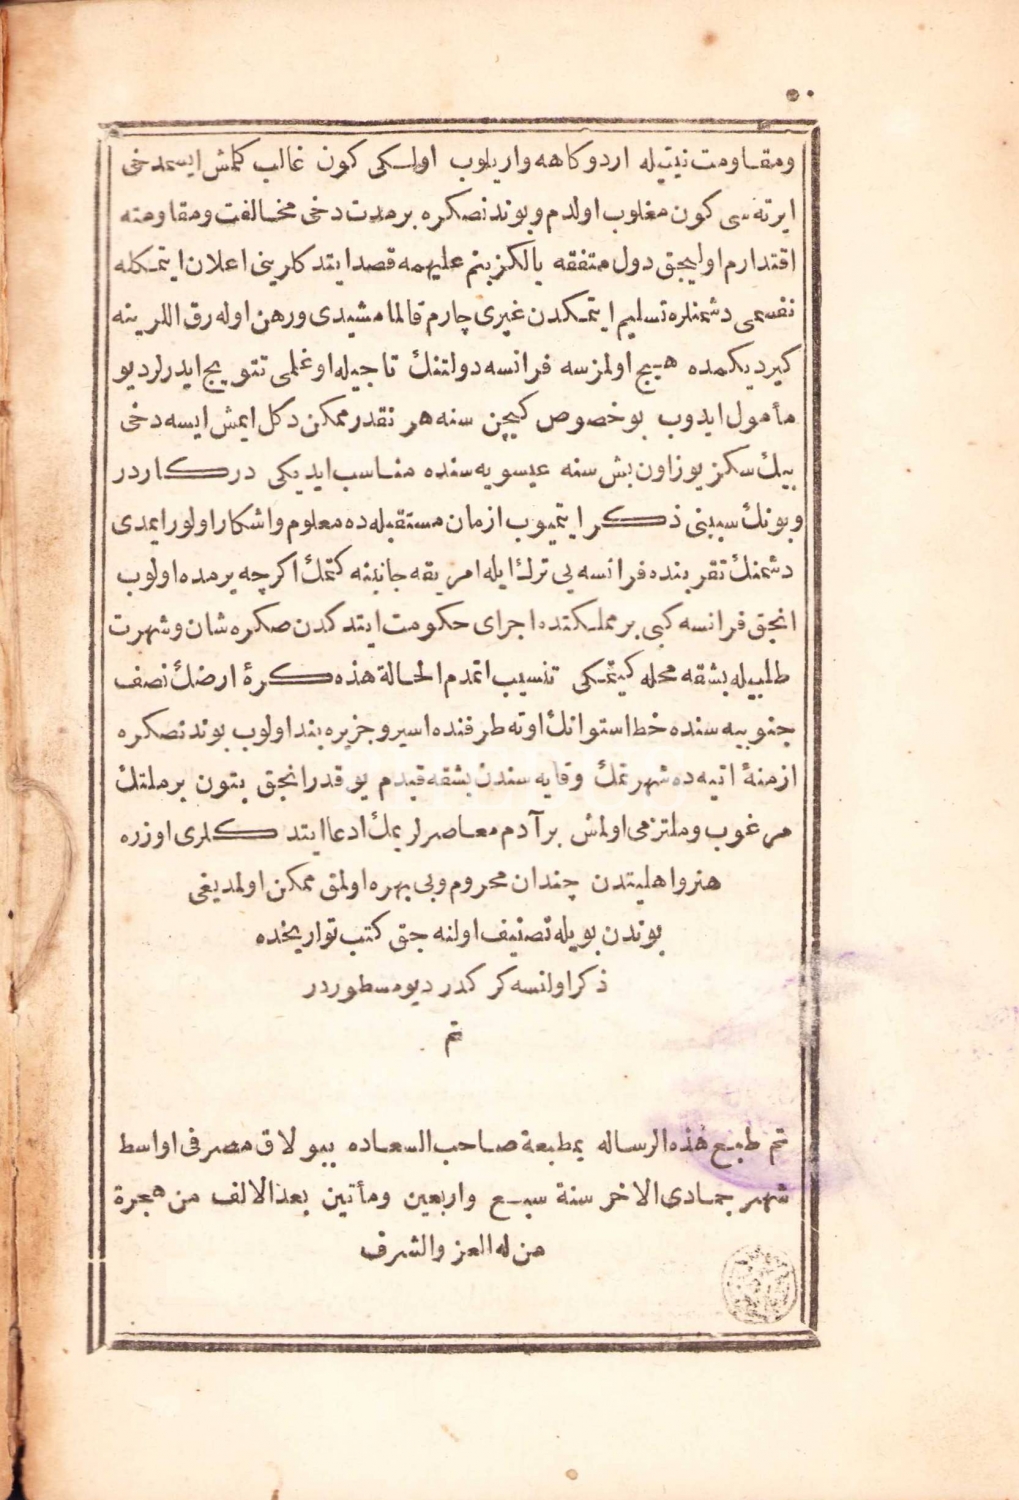 ٥٠
ومقاومت نيتيله اردوكاهه واريلوب اولكى كون غالب كلمش ايسمدخى
ايرته سى كون مغلوب اولدم وبوندنصكره بر مدت دخى مخالفت ومقاومته
اقتدارم اوليجق دول متفقه يالكز بنم عليهمه قصد ايتدكلرينى اعلان ايتمكله
نفسمى دشمنلره تسليم ايتمكدن غيرى چارم قالمامشيدى ورهن اوله رق اللرينه
كيرديكمده هيچ اولمزسه فرانسه دولتنك تاجيله اوغلمى تتويج ايدرلر ديو
مأمول ايدوب بو خصوص كيچن سنه هر نقدر ممكن دكل ايمش ايسه دخى
بيك سكز يوز اون بش سنه عيسويه سنده مناسب ايديكى دركاردر
وبونك سببنى ذكر ايتميوب ازمان مستقبله ده معلوم واشكار اولور ايمدى
دشمنك تقربنده فرانسه يى ترك ايله امريقه جانبنه كتمك اكرچه يرمده اولوب
انجق فرانسه كبى بر مملكتده اجراى حكومت ايتدكدن صكره شان وشهرت
طلبيله بشقه محله كيتمكى تنسيب اتمدم الحالة هذه كرۀ ارضك نصف
جنوبيه سنده خط استوانك اوته طرفنده اسير وجزيره بند اولوب بوندنصكره
ازمنۀ اتيه ده شهرتمك وقايه سندن بشقه قيدم يوقدر انجق بتون بر ملتك
مرغوب وملتزمى اولمش بر آدم معاصرلريمك ادعا ايتدكلرى اوزره
هنر واهليتدن چندان محروم وبى بهره اولمق ممكن اولمديغى
بوندن بويله تصنيف اولنه جق كتب تواريخده
ذكر اولنسه كركدر ديو مسطوردر
تم
تم طبع هذه الرساله بمطبعة صاحب السعاده ببولاق مصر فى اواسط
شهر جمادى الاخر سنة سبع واربعين ومأتين بعد الالف من هجرة
من له العز والشرف